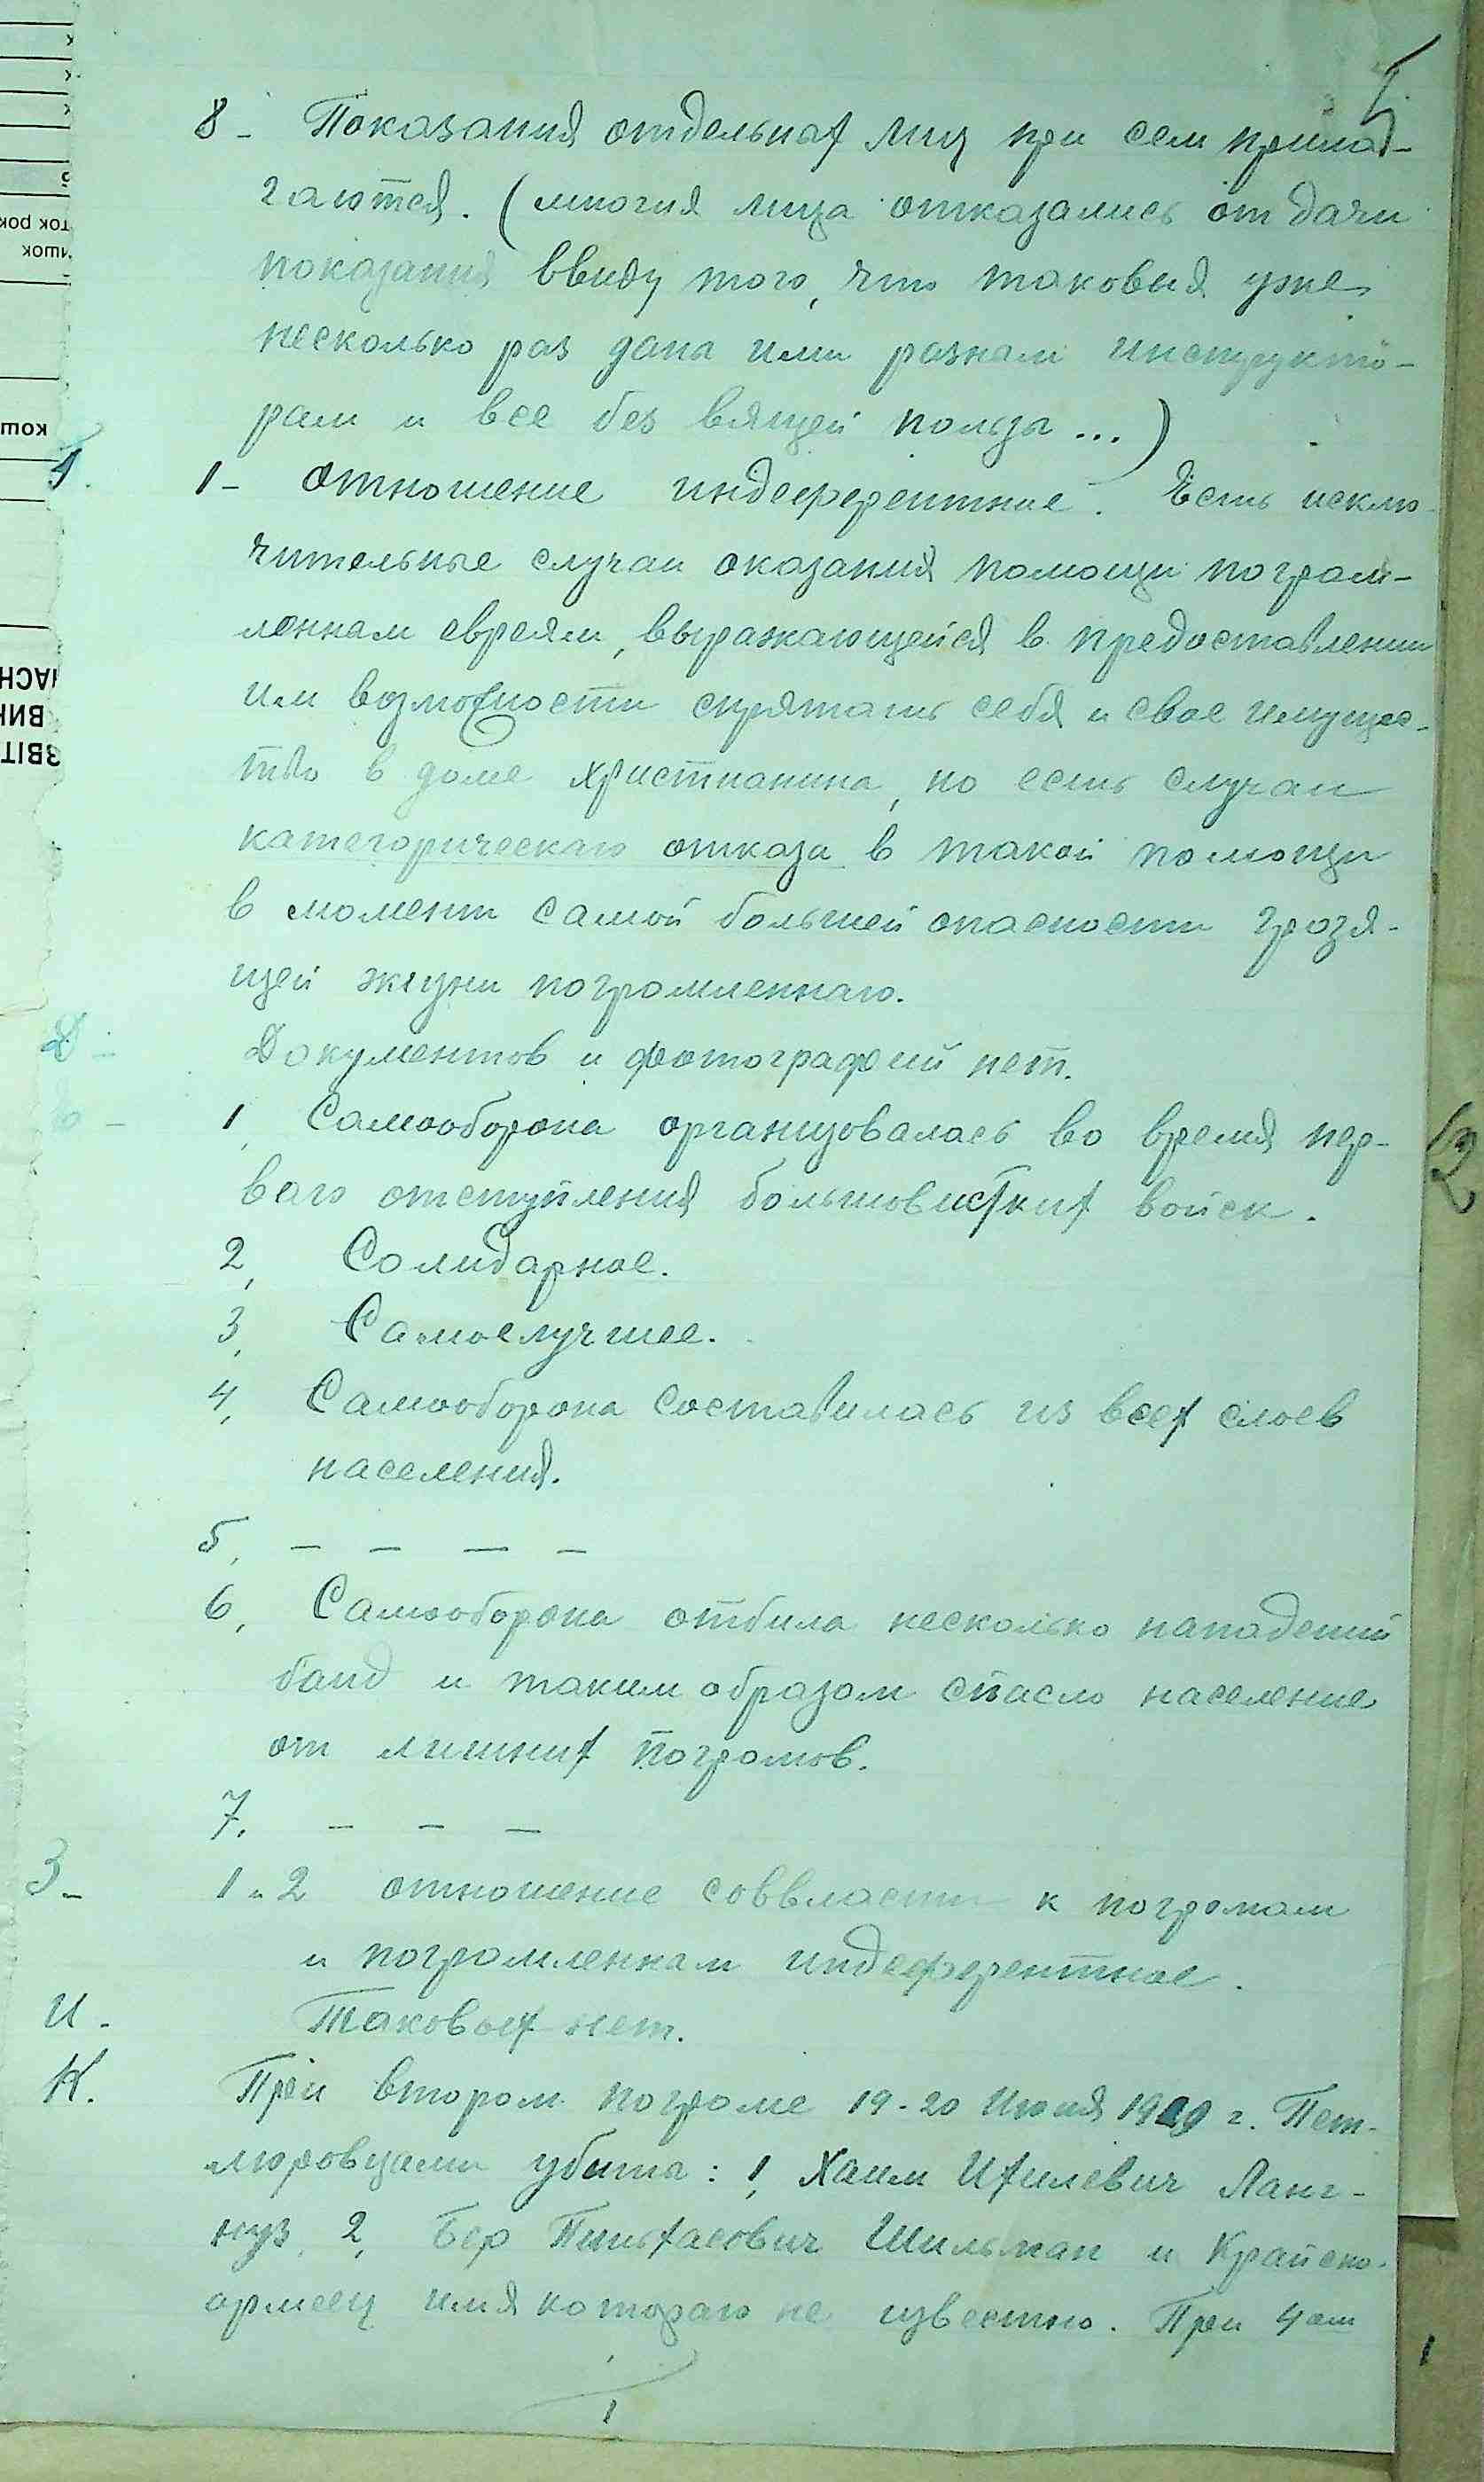 8 - Показания отдельных лиц при сем прила-
гаются. (многия лица отказались от дачи
показания ввиду того, что таковыя уже
несколько раз даны ими разным инструкто-
рам и все без вящей пользы ...)
1 - Отношение индеферентное. Есть исклю-
чительные случаи оказания помощи погром-
ленным евреям, выражающейся в предоставлении
им возможности спрятать себя и свое имущес-
тво в доме христианина, но есть случаи
категорическаго отказа в такой помощи
в момент самой большей опасности грозя-
щей жизни погромленнаго.
Д - Документов и фотографий нет.
1, Самооборона организовалась во время пер-
ваго отступления большовистких войск.
2, Солидарное.
3, Самоелучшее.
4, Самооборона составилась из всех слоев
населения.
5, - - - -
6, Самооборона отбила несколько нападений
банд и таким образом спасло население
от лишних погромов.
7. - - -
З - 1 и 2 отношение соввласти к погромам
и погромленным индеферентное.
И. Таковых нет.
К. При втором погроме 19-20 Июня 1919 г. Пет-
люровцами убиты: 1, Хаим Ихилевич Ланг-
нуз, 2, Бер Пинхасович Шильман и Крайсно-
армеец имя котораго не известно. При 4 ом
1